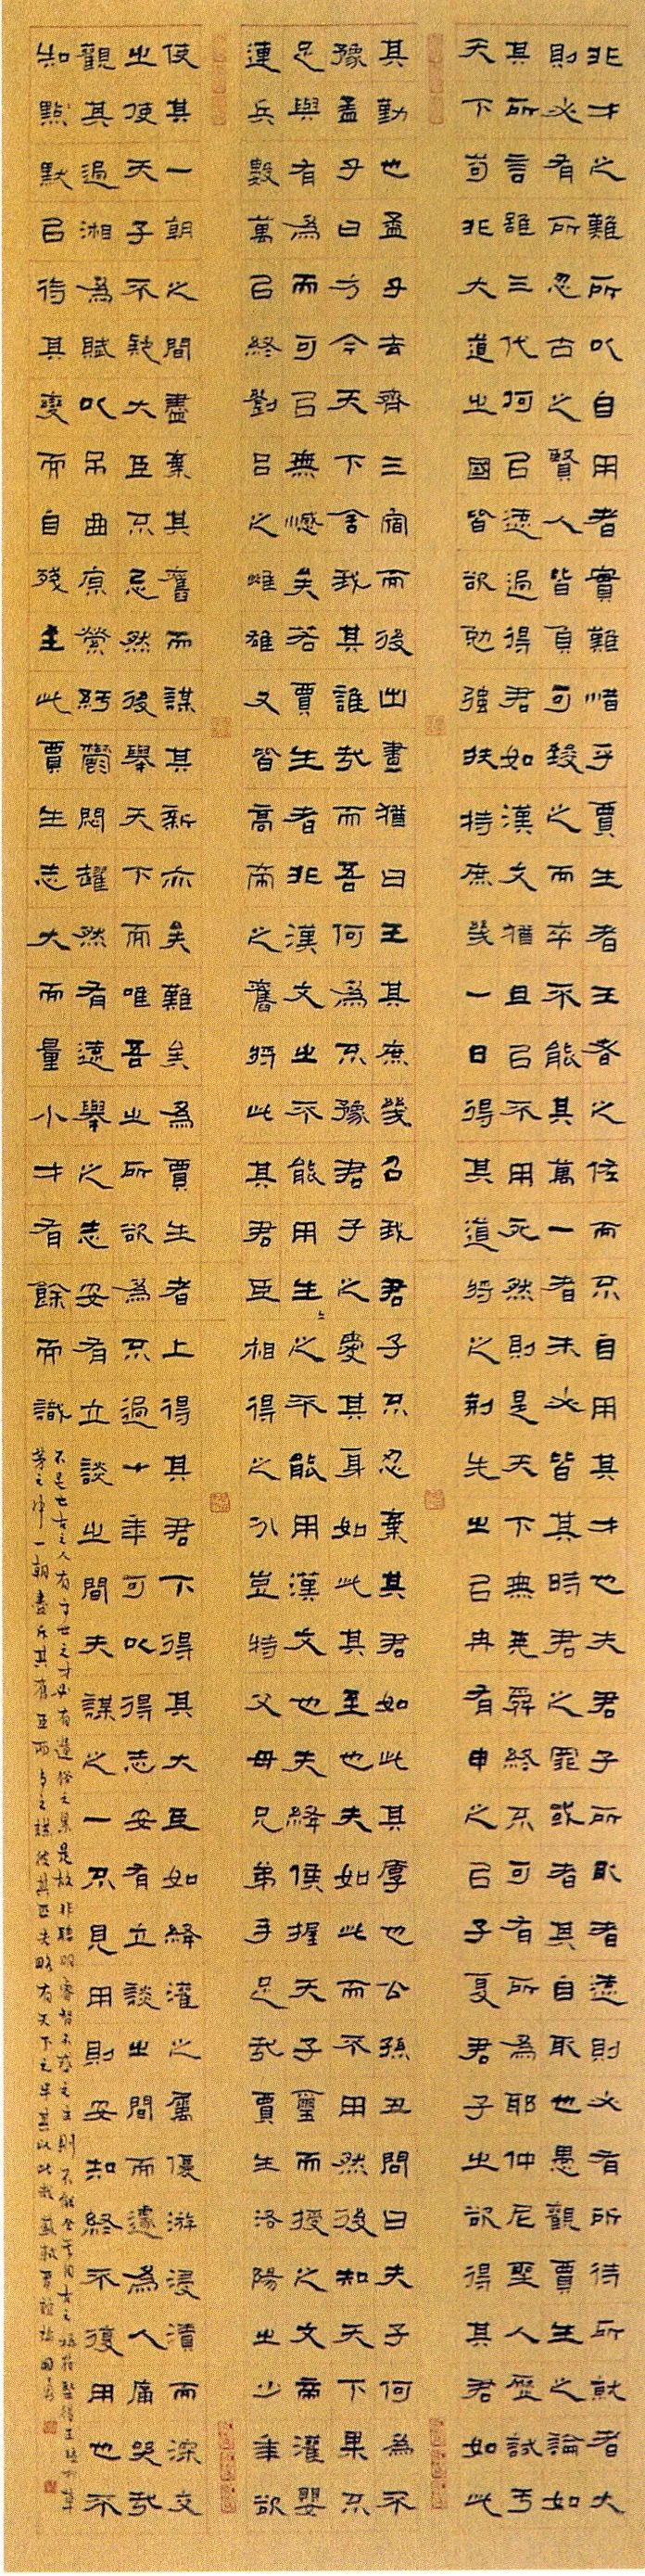 非才之難所以自用者實難惜乎賈生者王者之佐而不自用其才也夫君子所取者遠則必有所待所就者大
則必有所忍古之賢人皆負可致之而卒不能其萬一者未必皆其時君之罪或者其自取也愚觀賈生之論如
其所言雖三代何以遠過得君如漢文猶且以不用死然則是天下無堯舜終不可有所為耶仲尼聖人歷試于
天下苟非大道之國皆欲勉強扶持庶幾一日得其道將之荊先之以冉有申之以子夏君子之欲得其君如此
其勤也孟子去齊三宿而後出晝猶曰王其庶幾召我君子不忍棄其君如此其厚也公孫丑問曰夫子何為不
豫孟子曰方今天下舍我其誰哉而吾何為不豫君子之愛其身如此其至也夫如此而不用然後知天下果不
足與有為而可以無憾矣若賈生者非漢文之不能用生之不能用漢文也夫絳侯握天子璽而授之文帝灌嬰
連兵數萬以終劉呂之雌雄又皆高帝之舊將此其君臣相得之分豈特父母兄弟手足哉賈生洛陽之少年欲
使其一朝之間盡棄其舊而謀其新亦矣難矣為賈生者上得其君下得其大臣如絳灌之屬優游浸漬而深交
之使天子不疑大臣不忌然後舉天下而唯吾之所欲為不過十年可以得志安有立談之間而遽為人痛哭哉
觀其過湘為賦以吊屈原縈紆鬱悶趯然有遠舉之志安有立談之間夫謀之一不見用則安知終不復用也不
知點默以待其變而自殘至此賈生志大而量小才有餘而識
不足也古之人有高世之才必有遺俗之累是故非聰明睿智不惑之主則不能全其用古之稱苻堅得王猛於草
茅之中一朝盡斥其舊臣而與之謀彼其匹夫略有天下之半其以此哉蘇軾賈誼論